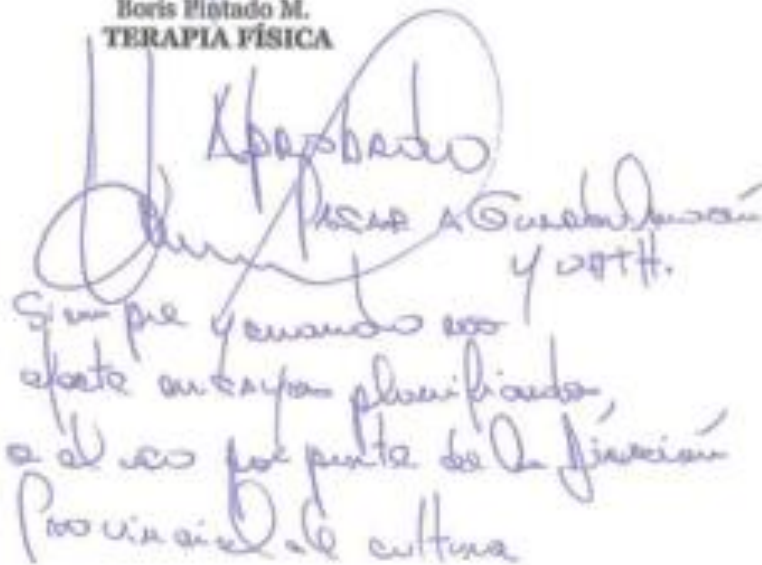 Boris Pintado M.
TERAPIA FÍSICA
Aprobado
Pasar a
y UATH.
Siempre y cuando no
afecte ensayos planificados,
o el uso por parte de la Dirección
Provincial de cultura